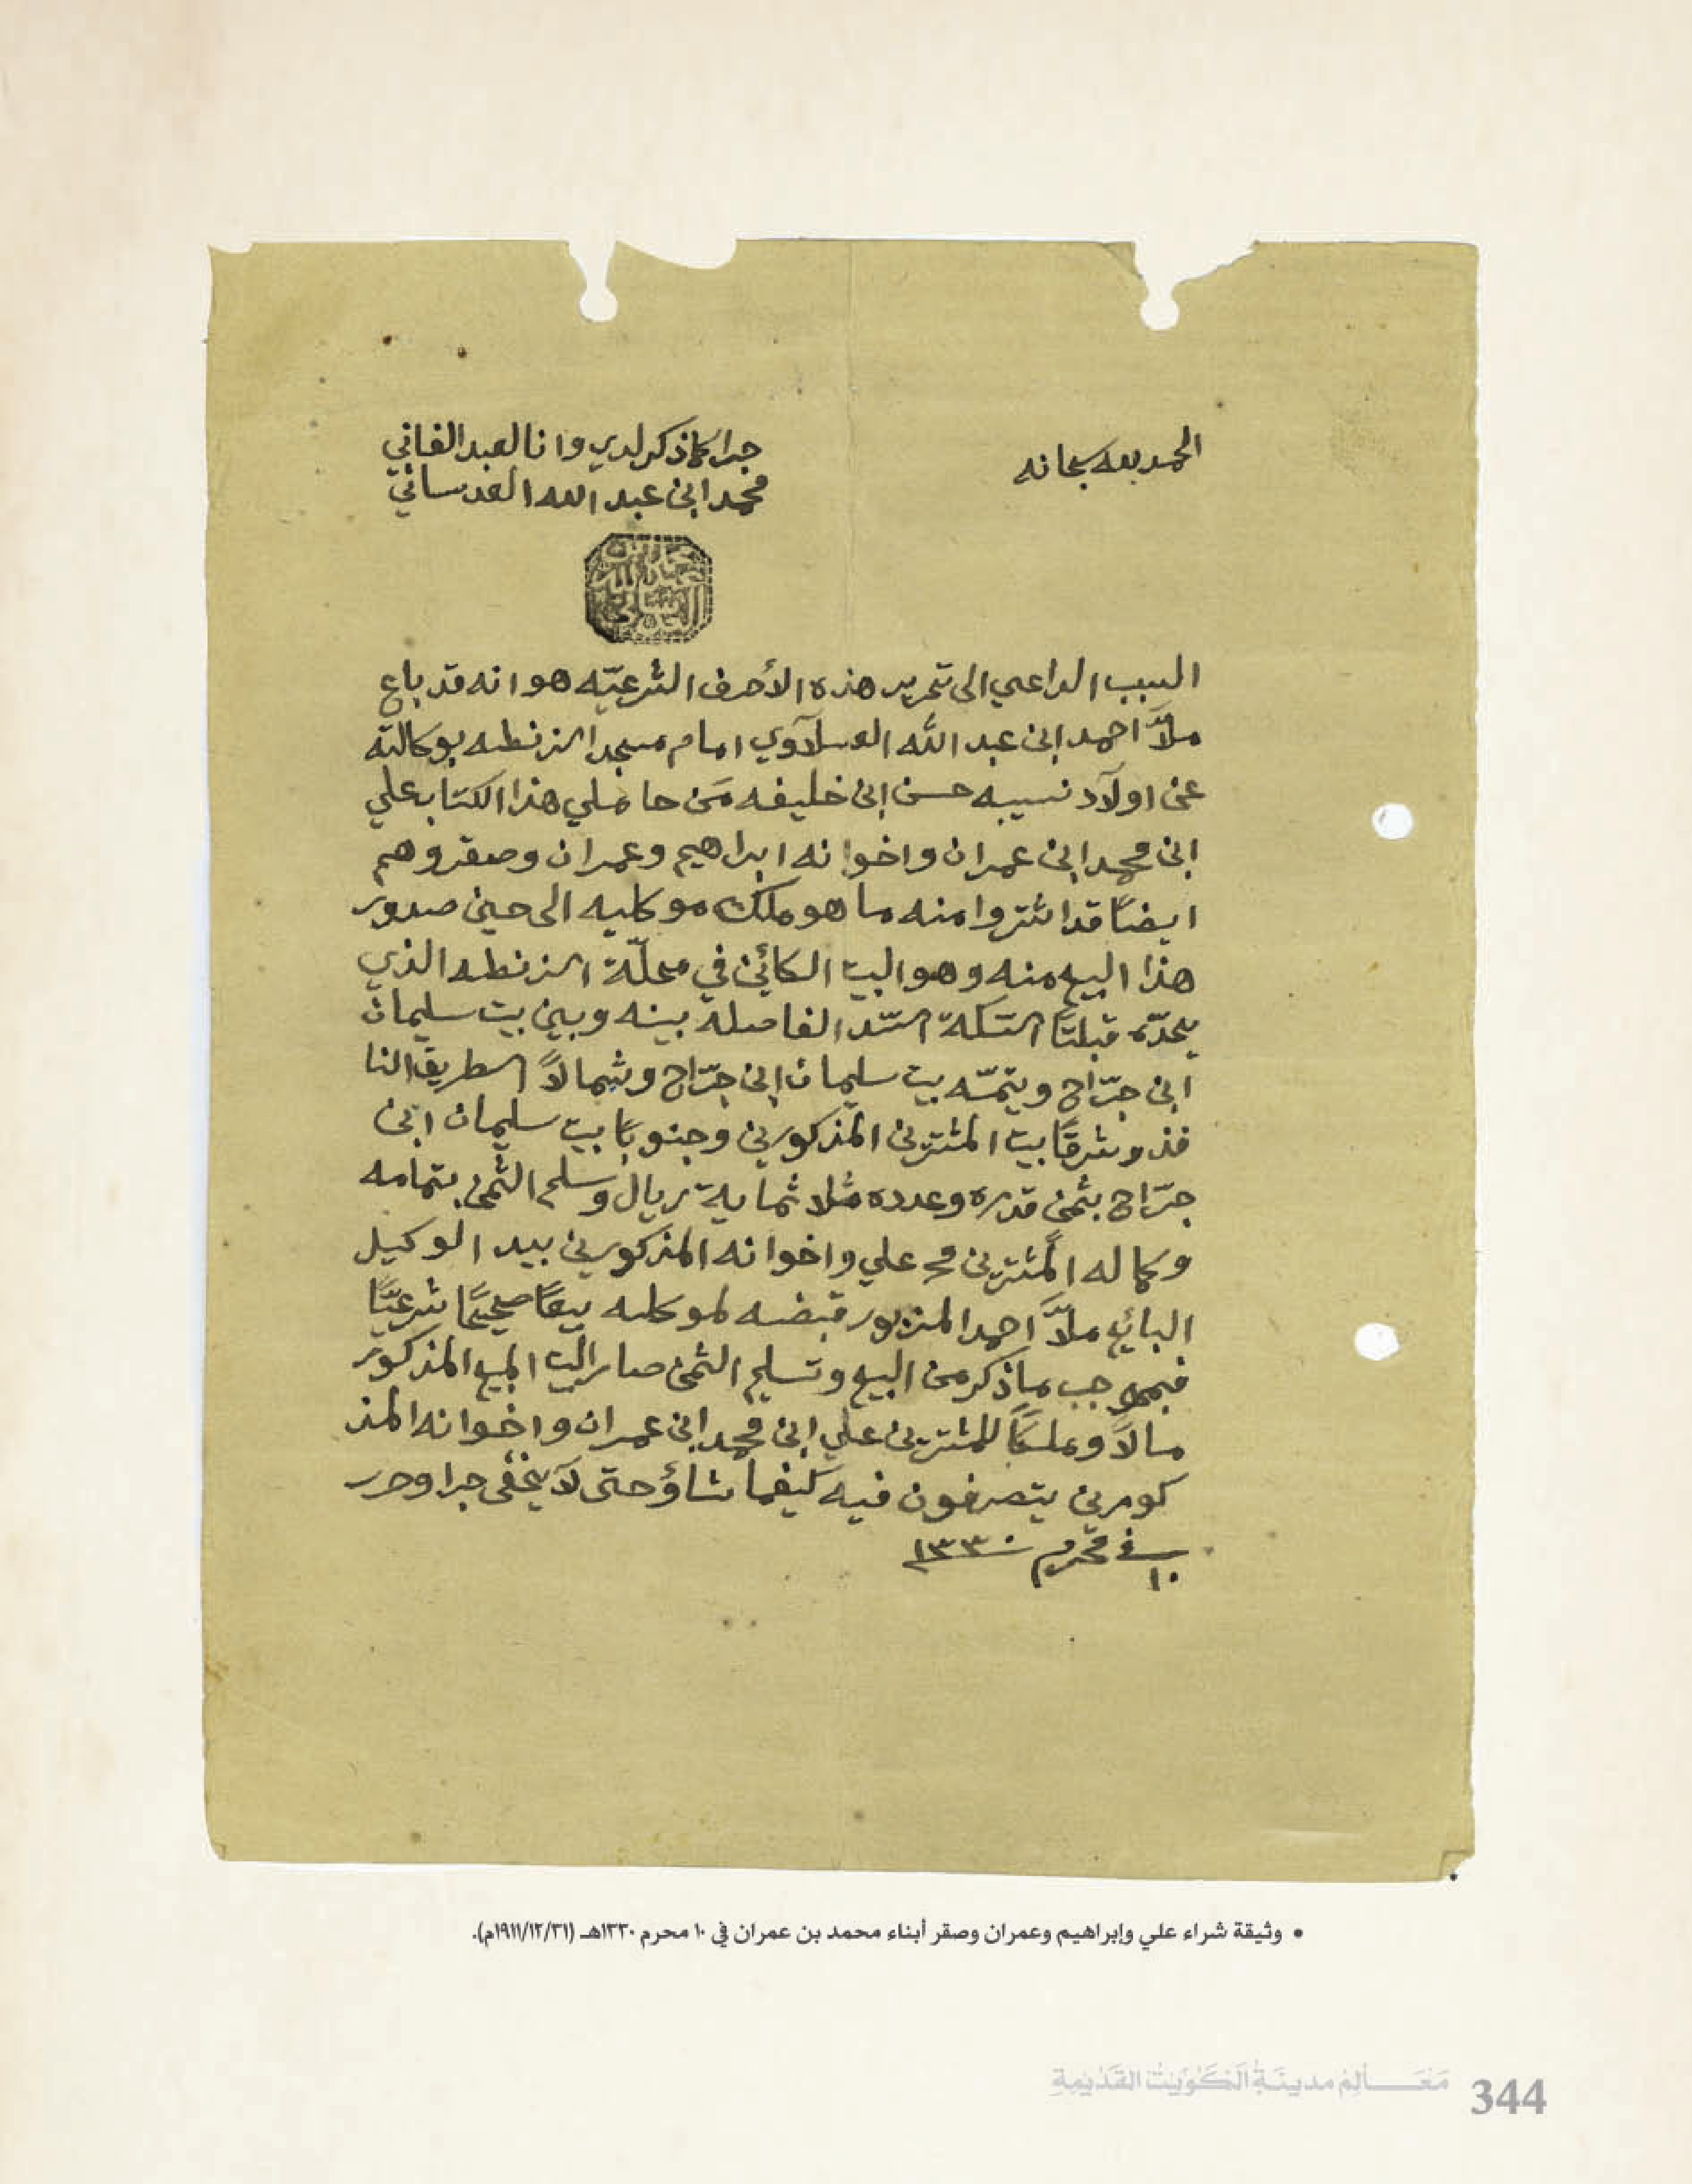 الحمد لله سبحانه
جرا كما ذكر لدي وانا العبد الفاني
محمد ابن عبد الله العدساني
السبب الداعي الى تحرير هذه الأحرف الشرعيّه هو انه قد باع
ملاّ احمد ابن عبد الله امام مسجد الزنطه بوكالته
عن اولآد نسيبه حسن ابن خليفه مَن حاملي هذا الكتاب علي
ابن محمد ابن عمران واخوانه ابراهيم وعمران وصقر وهم
ايضًا قد اشتروا منه ما هو ملك موكليه الى حين صدور
هذا البيع منه وهو البيت الكائن في محلّة الزنطه الذي
يحدّه قبلتًا السّكة السّد الفاصله بينه وبين بيت سليمان
ابن جرّاح ويتمّه بيت سليمان ابن جرّاح وشمالاً الطريق النا
فذ وشرقًا بيت المشترين المذكورين وجنوبًا بيت سليمان ابن
جرّاح بثمن قدره وعدده ثلاثماية ريال وسلم الثمن بتمامه
وكماله المشترين علي واخوانه المذكورين بيد الوكيل
البائع ملاّ احمد المزبور قبضه لموكليه بيعًا صحيحًا شرعيًّا
فبموجب ماذكر من البيع وتسليم الثمن صار البيت المبيع المذكور
مالاً وملكًا للمشترين علي ابن محمد ابن عمران واخوانه المذ
كورين يتصرفون فيه كيفما شاؤ حتى لآ يخفى جرا وحرر
في ١٠ محرم ١٣٣٠
• وثيقة شراء علي وإبراهيم وعمران وصقر أبناء محمد بن عمران في ١٠ محرم ١٣٣٠هـ (١٩١١/١٢/٣١م).
مَعَالِمُ مدينَةِ الكُوَيْت القَدِيمَةِ 344